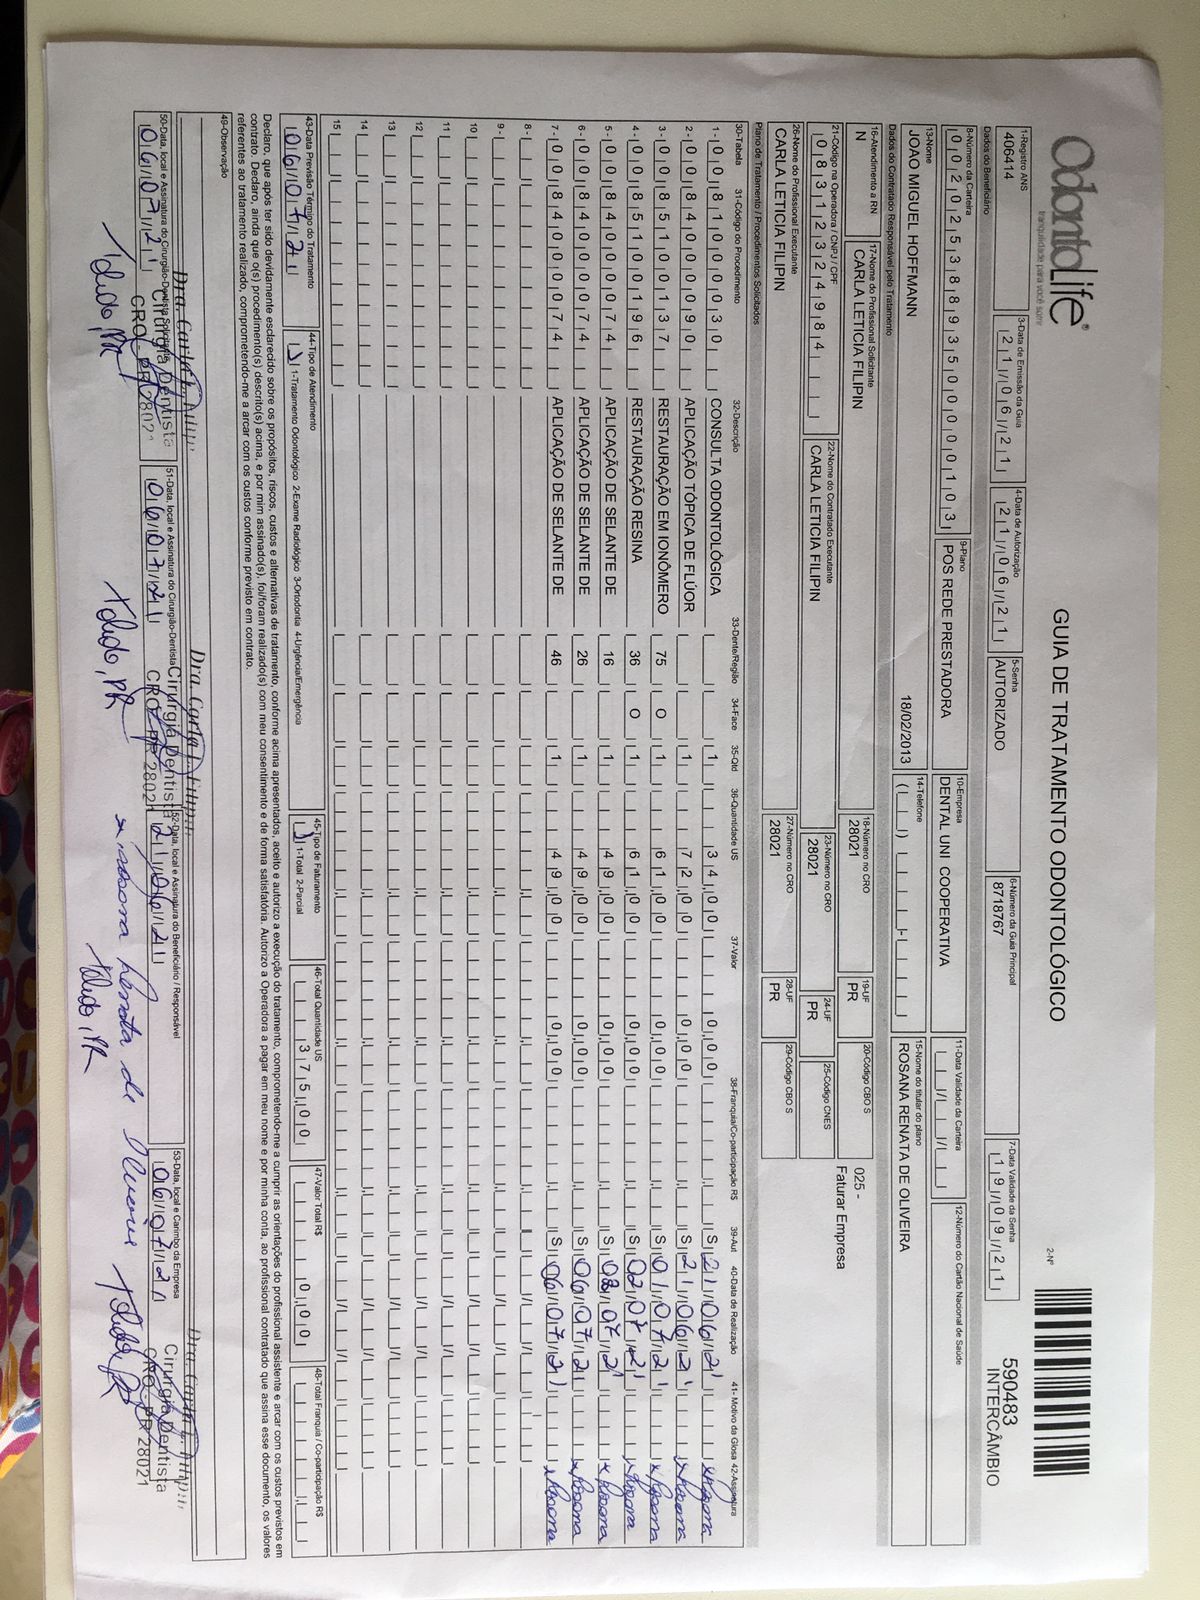 OdontoLife®
tranquilidade para você sorrir
GUIA DE TRATAMENTO ODONTOLÓGICO
2-Nº
590483
INTERCÂMBIO
1-Registro ANS
406414
3-Data de Emissão da Guia
21/06/21
4-Data de Autorização
21/06/21
5-Senha
AUTORIZADO
6-Número da Guia Principal
8718767
7-Data Validade da Senha
19/09/21
Dados do Beneficiário
8-Número da Carteira
00202538893500000103
9-Plano
POS REDE PRESTADORA
10-Empresa
DENTAL UNI COOPERATIVA
11-Data Validade da Carteira
12-Número do Cartão Nacional de Saúde
13-Nome
JOAO MIGUEL HOFFMANN
18/02/2013
14-Telefone
15-Nome do titular do plano
ROSANA RENATA DE OLIVEIRA
Dados do Contratado Responsável pelo Tratamento
16-Atendimento a RN
N
17-Nome do Profissional Solicitante
CARLA LETICIA FILIPIN
18-Número no CRO
28021
19-UF
PR
20-Código CBO S
025 -
Faturar Empresa
21-Código na Operadora / CNPJ / CPF
08312324984
22-Nome do Contratado Executante
CARLA LETICIA FILIPIN
23-Número no CRO
28021
24-UF
PR
25-Código CNES
26-Nome do Profissional Executante
CARLA LETICIA FILIPIN
27-Número no CRO
28021
28-UF
PR
29-Código CBO S
Plano de Tratamento / Procedimentos Solicitados
30-Tabela 31-Código do Procedimento 32-Descrição 33-Dente/Região 34-Face 35-Qtd 36-Quantidade US 37-Valor 38-Franquia/Co-participação R$ 39-Aut 40-Data de Realização 41- Motivo da Glosa 42-Assinatura
1- 00 81000030 CONSULTA ODONTOLÓGICA 1 34,00 0,00 S 21/06/21 x Rosana
2- 00 84000090 APLICAÇÃO TÓPICA DE FLÚOR 1 72,00 0,00 S 21/06/21 x Rosana
3- 00 85100137 RESTAURAÇÃO EM IONÔMERO 75 O 1 61,00 0,00 S 01/07/21 x Rosana
4- 00 85100196 RESTAURAÇÃO RESINA 36 O 1 61,00 0,00 S 02/07/21 x Rosana
5- 00 84000074 APLICAÇÃO DE SELANTE DE 16 1 49,00 0,00 S 08/07/21 x Rosana
6- 00 84000074 APLICAÇÃO DE SELANTE DE 26 1 49,00 0,00 S 06/07/21 x Rosana
7- 00 84000074 APLICAÇÃO DE SELANTE DE 46 1 49,00 0,00 S 06/07/21 x Rosana
8-
9-
10
11
12
13
14
15
43-Data Previsão Término do Tratamento
06/07/21
44-Tipo de Atendimento
1-Tratamento Odontológico 2-Exame Radiológico 3-Ortodontia 4-Urgência/Emergência
45-Tipo de Faturamento
1-Total 2-Parcial
46-Total Quantidade US
375,00
47-Valor Total R$
0,00
48-Total Franquia / Co-participação R$
Declaro, que após ter sido devidamente esclarecido sobre os propósitos, riscos, custos e alternativas de tratamento, conforme acima apresentados, aceito e autorizo a execução do tratamento, comprometendo-me a cumprir as orientações do profissional assistente e arcar com os custos previstos em
contrato. Declaro, ainda que o(s) procedimento(s) descrito(s) acima, e por mim assinado(s), foi/foram realizado(s) com meu consentimento e de forma satisfatória. Autorizo a Operadora a pagar em meu nome e por minha conta, ao profissional contratado que assina esse documento, os valores
referentes ao tratamento realizado, comprometendo-me a arcar com os custos conforme previsto em contrato.
49-Observação
Dra. Carla L. Filipin
Cirurgiã Dentista
CRO - PR 28021
50-Data, local e Assinatura do Cirurgião-Dentista Solicitante
06/07/21
Toledo, PR
Dra. Carla L. Filipin
Cirurgiã Dentista
CRO - PR 28021
51-Data, local e Assinatura do Cirurgião-Dentista
06/07/21
Toledo, PR
52-Data, local e Assinatura do Beneficiário / Responsável
21/06/21
x Rosana Renata de Oliveira
Toledo, PR
53-Data, local e Carimbo da Empresa
06/07/21
Dra. Carla L. Filipin
Cirurgiã Dentista
CRO - PR 28021
Toledo, PR